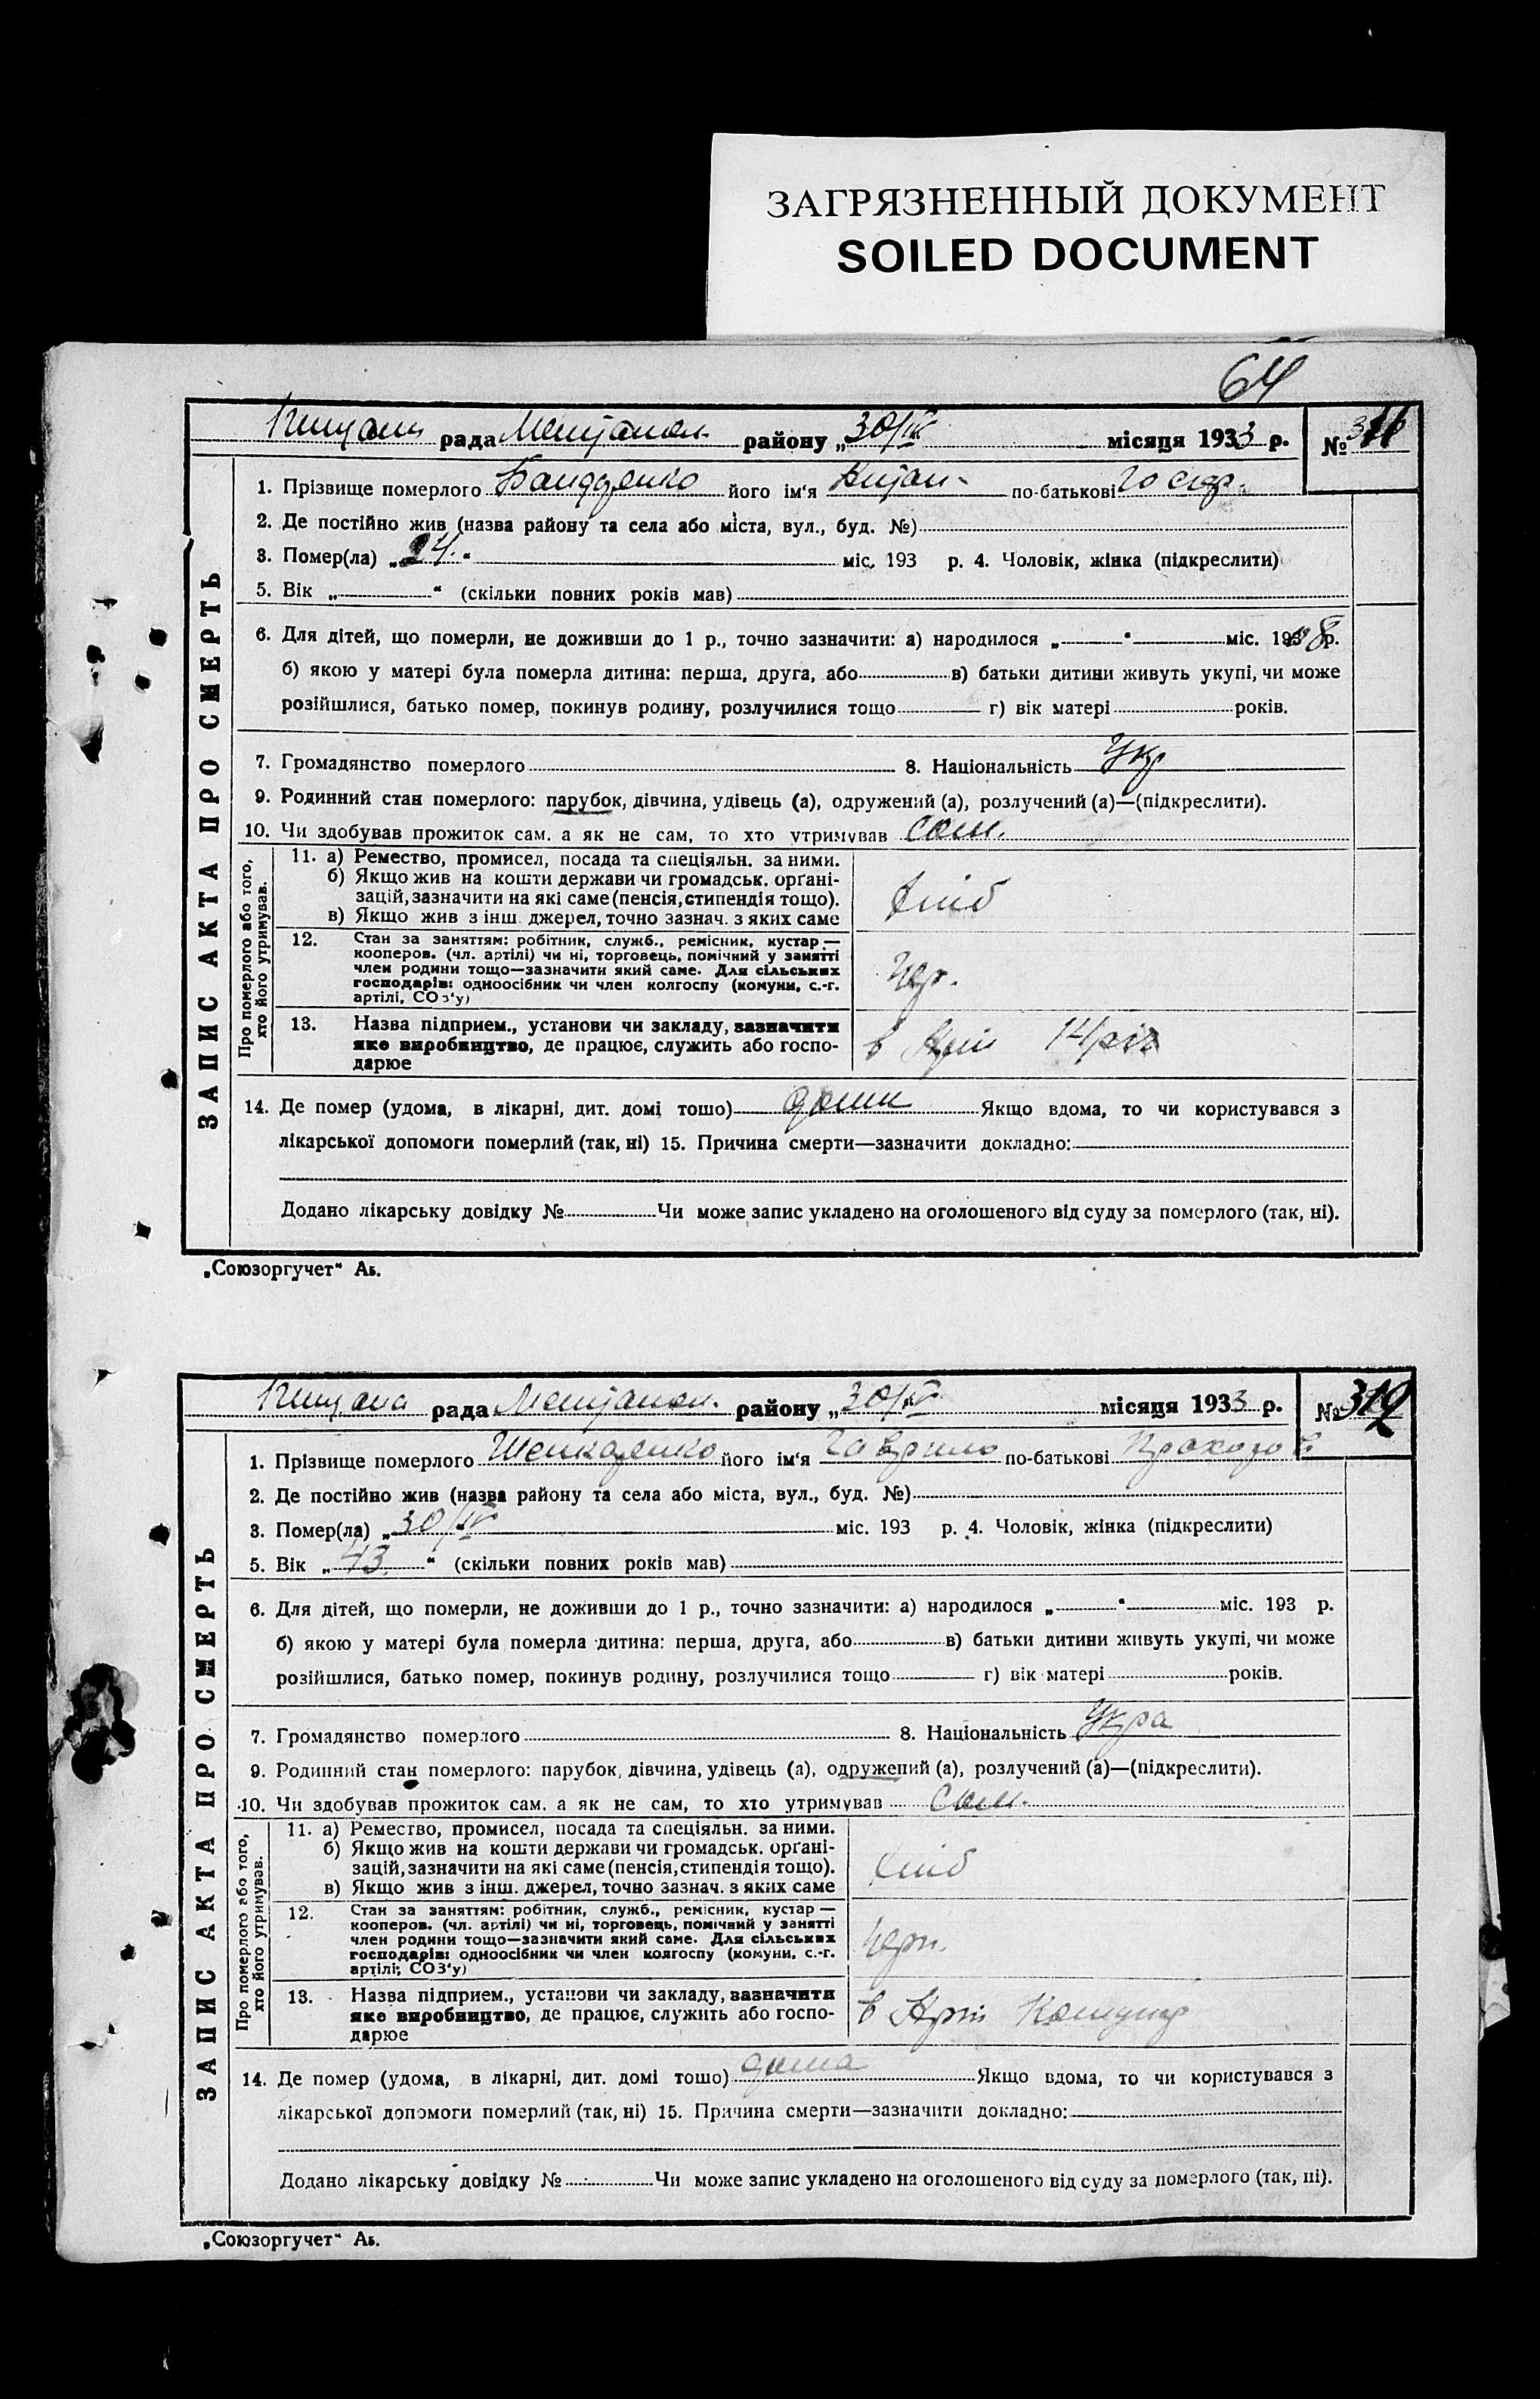 ЗАГРЯЗНЕННЫЙ ДОКУМЕНТ
SOILED DOCUMENT
64
рада району „30/IV місяця 1933 р. №
ЗАПИС АКТА ПРО СМЕРТЬ
1. Прізвище померлого його ім'я по-батькові
2. Де постійно жив (назва району та села або міста, вул., буд. №)
3. Помер(ла) „24.“ міс. 193 р. 4. Чоловік, жінка (підкреслити)
5. Вік „ “ (скільки повних років мав)
6. Для дітей, що померли, не доживши до 1 р., точно зазначити: а) народилося „ “ міс. 193 р.
б) якою у матері була померла дитина: перша, друга, або в) батьки дитини живуть укупі, чи може
розійшлися, батько помер, покинув родину, розлучилися тощо г) вік матері років.
7. Громадянство померлого 8. Національність Укр
9. Родинний стан померлого: парубок, дівчина, удівець (а), одружений (а), розлучений (а)—(підкреслити).
10. Чи здобував прожиток сам. а як не сам, то хто утримував сам.
Про померлого або того,
хто його утримував.
11. а) Ремество, промисел, посада та спеціяльн. за ними.
б) Якщо жив на кошти держави чи громадськ. орґані-
зацій, зазначити на які саме (пенсія, стипендія тощо).
в) Якщо жив з інш. джерел, точно зазнач. з яких саме
12. Стан за заняттям: робітник, служб., ремісник, кустар —
кооперов. (чл. артілі) чи ні, торговець, помічний у занятті
член родини тощо—зазначити який саме. Для сільських
господарів: одноосібник чи член колгоспу (комуни, с.-г.
артілі, СОЗ'у)
13. Назва підприєм., установи чи закладу, зазначити
яке виробництво, де працює, служить або госпо-
дарює
14. Де помер (удома, в лікарні, дит. домі тощо) Якщо вдома, то чи користувався з
лікарської допомоги померлий (так, ні) 15. Причина смерти—зазначити докладно:
Додано лікарську довідку № Чи може запис укладено на оголошеного від суду за померлого (так, ні).
„Союзоргучет“ Аь.
рада району „30/IV місяця 1933 р. №
ЗАПИС АКТА ПРО СМЕРТЬ
1. Прізвище померлого його ім'я Гаврило по-батькові
2. Де постійно жив (назва району та села або міста, вул., буд. №)
3. Помер(ла) „30/IV міс. 193 р. 4. Чоловік, жінка (підкреслити)
5. Вік „43.“ (скільки повних років мав)
6. Для дітей, що померли, не доживши до 1 р., точно зазначити: а) народилося „ “ міс. 193 р.
б) якою у матері була померла дитина: перша, друга, або в) батьки дитини живуть укупі, чи може
розійшлися, батько помер, покинув родину, розлучилися тощо г) вік матері років.
7. Громадянство померлого 8. Національність Укра
9. Родинний стан померлого: парубок, дівчина, удівець (а), одружений (а), розлучений (а)—(підкреслити).
10. Чи здобував прожиток сам. а як не сам, то хто утримував сам.
Про померлого або того,
хто його утримував.
11. а) Ремество, промисел, посада та спеціяльн. за ними.
б) Якщо жив на кошти держави чи громадськ. орґані-
зацій, зазначити на які саме (пенсія, стипендія тощо).
в) Якщо жив з інш. джерел, точно зазнач. з яких саме
12. Стан за заняттям: робітник, служб., ремісник, кустар —
кооперов. (чл. артілі) чи ні, торговець, помічний у занятті
член родини тощо—зазначити який саме. Для сільських
господарів: одноосібник чи член колгоспу (комуни, с.-г.
артілі, СОЗ'у)
13. Назва підприєм., установи чи закладу, зазначити
яке виробництво, де працює, служить або госпо-
дарюе
14. Де помер (удома, в лікарні, дит. домі тощо) дома Якщо вдома, то чи користувався з
лікарської допомоги померлий (так, ні) 15. Причина смерти—зазначити докладно:
Додано лікарську довідку № Чи може запис укладено на оголошеного від суду за померлого (так, ні).
„Союзоргучет“ Аь.